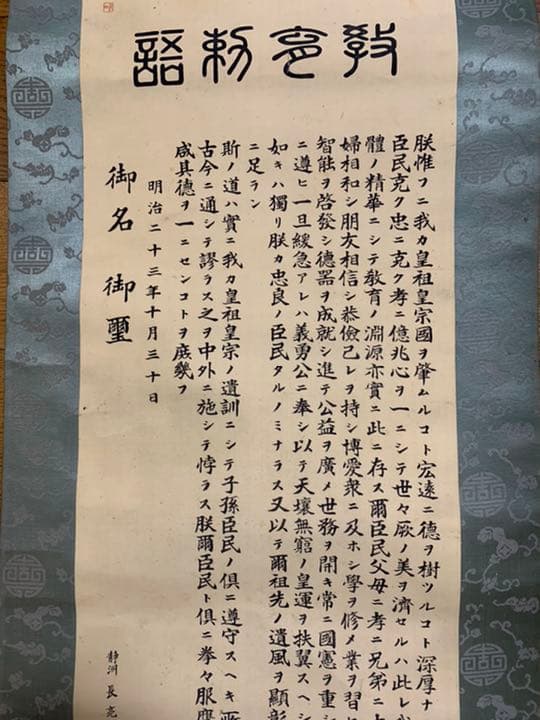 教育勅語
朕惟フニ我カ皇祖皇宗國ヲ肇ムルコト宏遠ニ德ヲ樹ツルコト深厚ナ
臣民克ク忠ニ克ク孝ニ億兆心ヲ一ニシテ世々厥ノ美ヲ濟セルハ此レ
體ノ精華ニシテ教育ノ淵源亦實ニ此ニ存ス爾臣民父母ニ孝ニ兄弟ニ
婦相和シ朋友相信シ恭儉己レヲ持シ博愛衆ニ及ホシ學ヲ修メ業ヲ習
智能ヲ啓發シ德器ヲ成就シ進テ公益ヲ廣メ世務ヲ開キ常ニ國憲ヲ重シ
ニ遵ヒ一旦緩急アレハ義勇公ニ奉シ以テ天壤無窮ノ皇運ヲ扶翼スヘシ
如キハ獨リ朕カ忠良ノ臣民タルノミナラス又以テ爾祖先ノ遺風ヲ顯彰
ニ足ラン
斯ノ道ハ實ニ我カ皇祖皇宗ノ遺訓ニシテ子孫臣民ノ俱ニ遵守スヘキ所
古今ニ通シテ謬ラス之ヲ中外ニ施シテ悖ラス朕爾臣民ト俱ニ拳々服膺
咸其德ヲ一ニセンコトヲ庶幾フ
明治二十三年十月三十日
御名 御璽
静洲 長亮